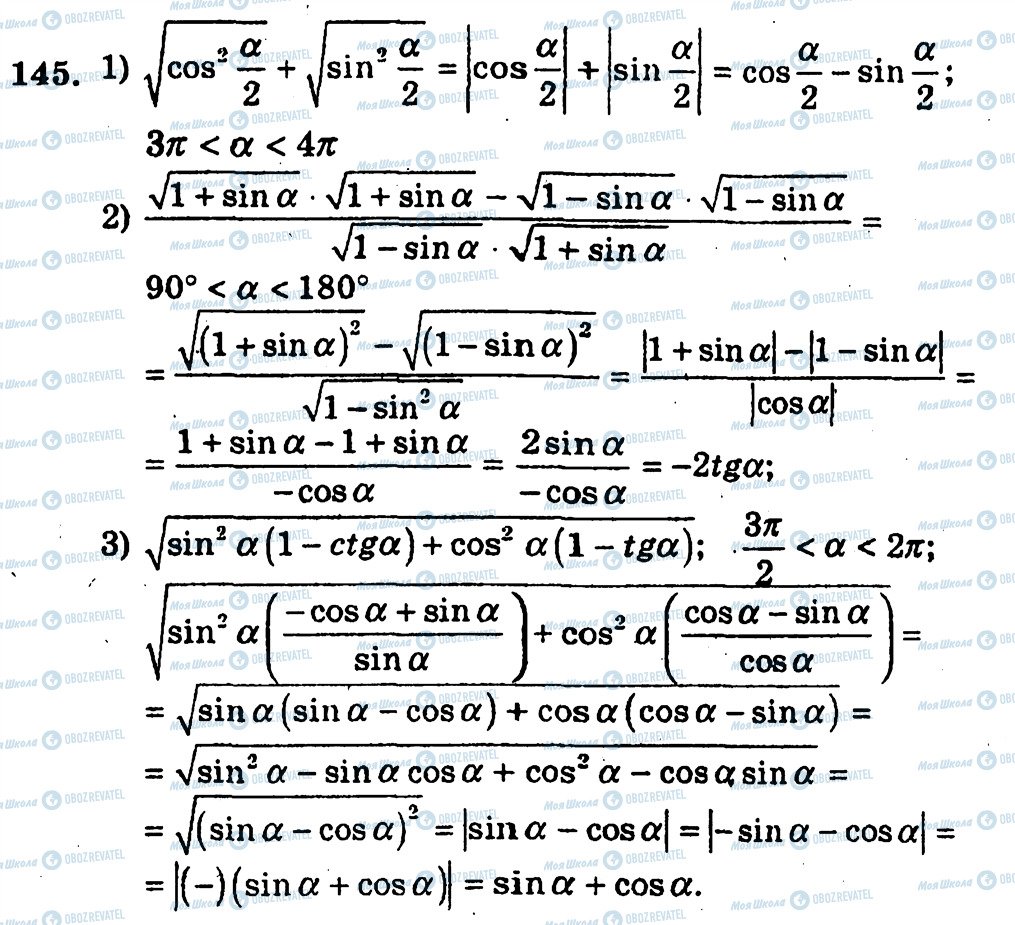 145. 1) √(cos² α/2) + √(sin² α/2) = |cos α/2| + |sin α/2| = cos α/2 − sin α/2;
3π < α < 4π
2) (√(1 + sin α) · √(1 + sin α) − √(1 − sin α) · √(1 − sin α)) / (√(1 − sin α) · √(1 + sin α)) =
90° < α < 180°
= (√((1 + sin α)²) − √((1 − sin α)²)) / √(1 − sin² α) = (|1 + sin α| − |1 − sin α|) / |cos α| =
= (1 + sin α − 1 + sin α) / (− cos α) = (2 sin α) / (− cos α) = −2tgα;
3) √(sin² α(1 − ctgα) + cos² α(1 − tgα)); 3π/2 < α < 2π;
√(sin² α((− cos α + sin α) / sin α) + cos² α((cos α − sin α) / cos α)) =
= √(sin α(sin α − cos α) + cos α(cos α − sin α)) =
= √(sin² α − sin α cos α + cos² α − cos α sin α) =
= √((sin α − cos α)²) = |sin α − cos α| = |− sin α − cos α| =
= |(−)(sin α + cos α)| = sin α + cos α.
Моя Школа OBOZREVATEL